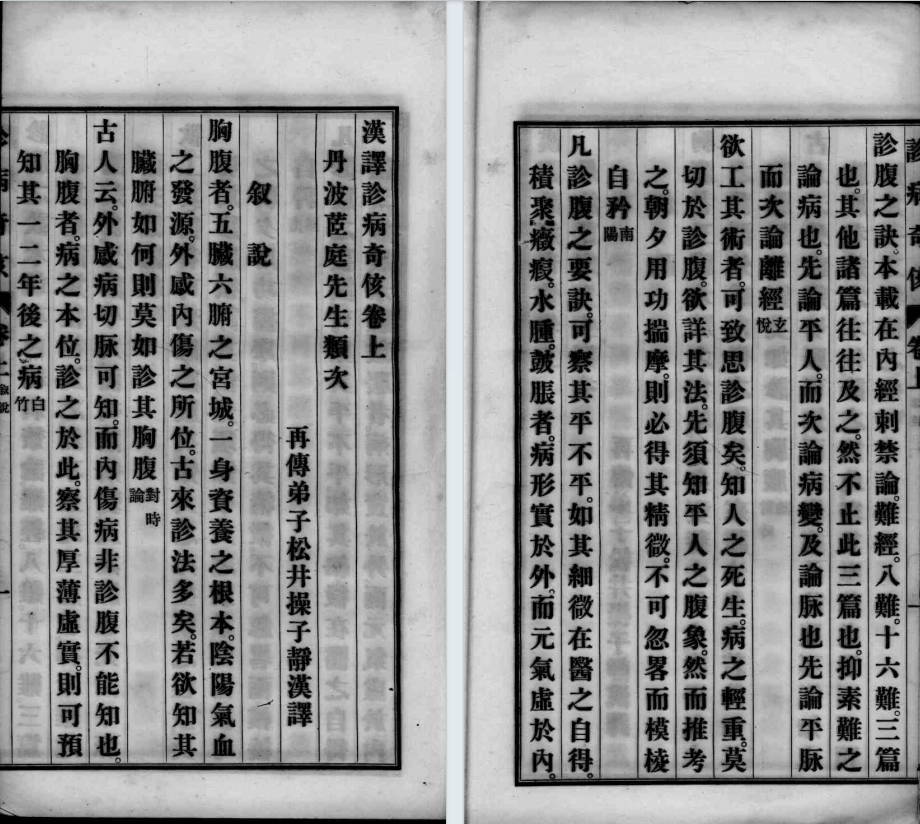 漢譯診病奇侅卷上
丹波茝庭先生類次
再傳弟子松井操子靜漢譯
叙說
胸腹者。五臟六腑之宮城。一身資養之根本。陰陽氣血
之發源。外感內傷之所位。古來診法多矣。若欲知其
臟腑如何則莫如診其胸腹對時論
古人云。外感病切脉可知。而內傷病非診腹不能知也。
胸腹者。病之本位。診之於此。察其厚薄虛實。則可預
知其一二年後之病白竹
卷上 叙說 一
診病奇侅 卷上
診腹之訣。本載在內經刺禁論。難經。八難。十六難。三篇
也。其他諸篇往往及之。然不止此三篇也。抑素難之
論病也。先論平人。而次論病變。及論脉也先論平脉
而次論離經玄悅
欲工其術者。可致思診腹矣。知人之死生。病之輕重。莫
切於診腹。欲詳其法。先須知平人之腹象。然而推考
之。朝夕用功揣摩。則必得其精微。不可忽畧而模棱
自矜南陽
凡診腹之要訣。可察其平不平。如其細微在醫之自得。
積聚癥瘕。水腫。鼓脹者。病形實於外。而元氣虛於內。